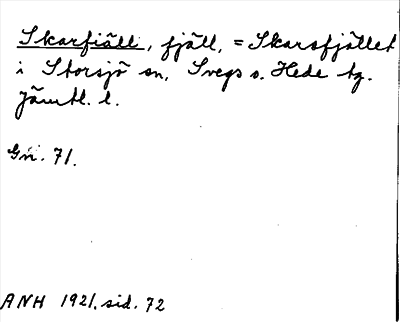 Skarfiäll, fjäll, = Skarsfjället
i Storsjö sn, Svegs o. Hede tg.
Jämtl. l.
Gn. 71.
ANH 1921, sid. 72